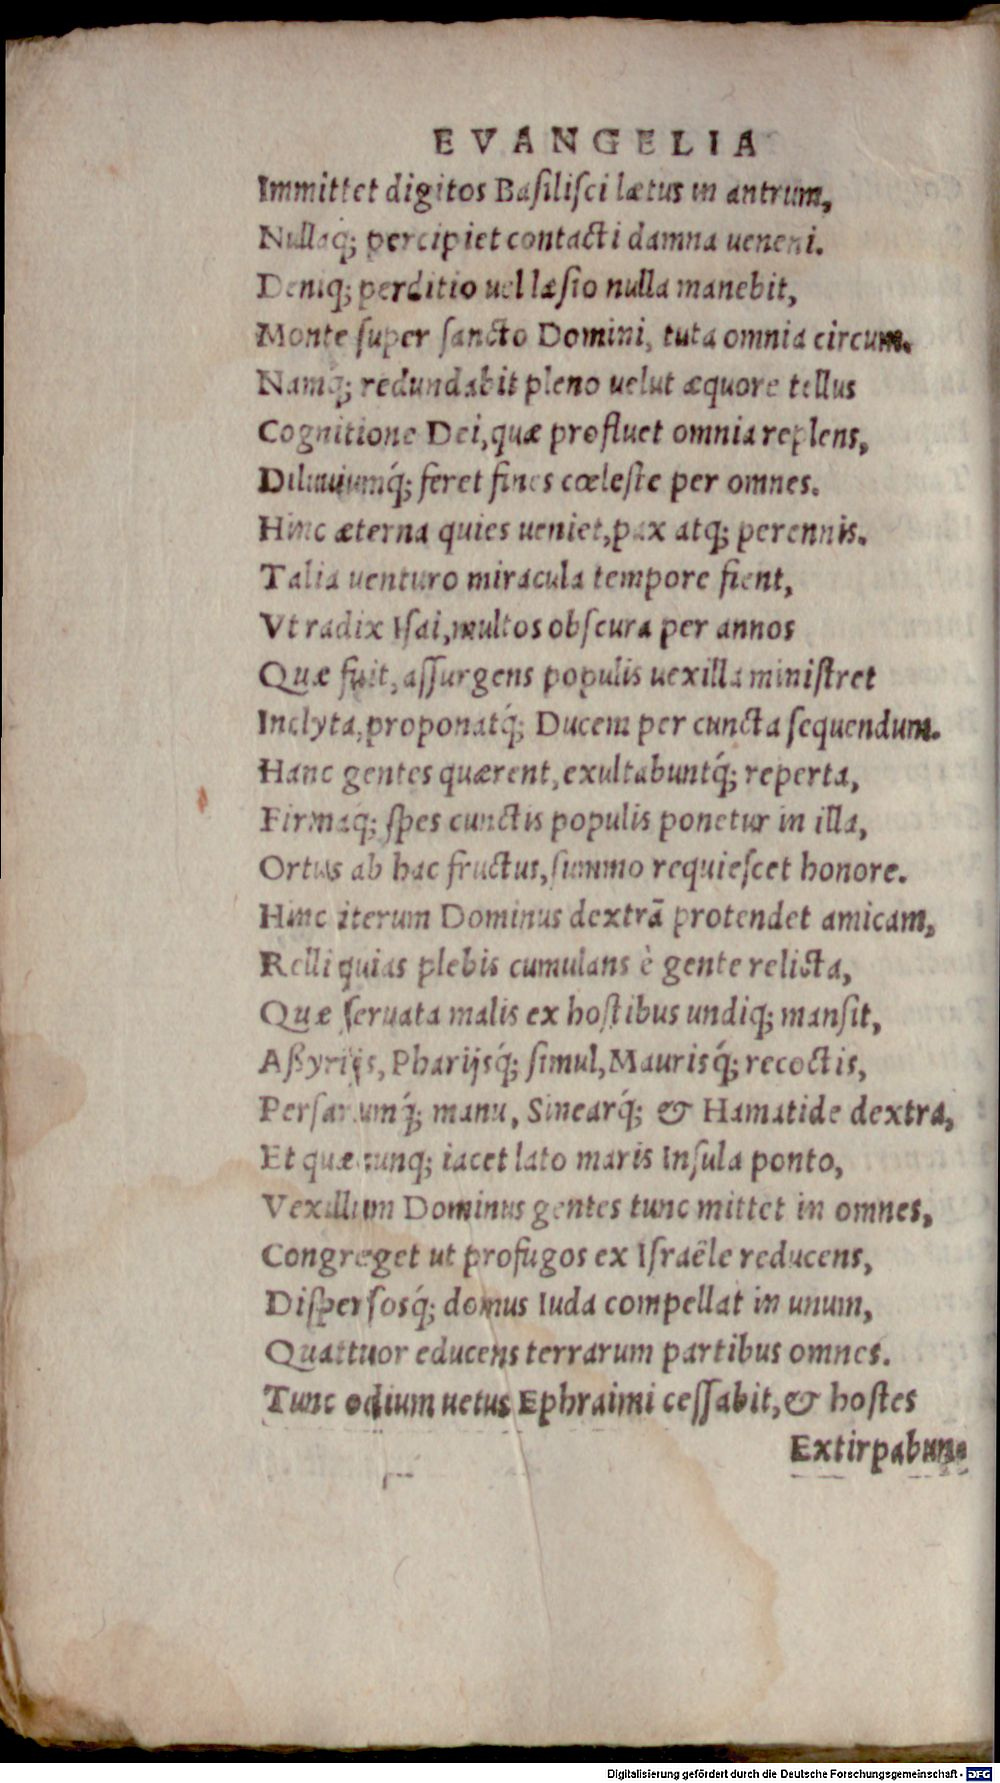 EVANGELIA
Immittet digitos Basiliſci lætus in antrum,
Nullaq́; percipiet contacti damna ueneni.
Deniq; perditio uel læſio nulla manebit,
Monte ſuper ſancto Domini, tuta omnia circum.
Namq; redundabit pleno uelut æquore tellus
Cognitione Dei, quæ profluet omnia replens,
Diluuiumq́; feret fines cœleſte per omnes.
Hinc æterna quies ueniet, pax atq; perennis.
Talia uenturo miracula tempore fient,
Vt radix Iſai, multos obſcura per annos
Quæ fuit, aſſurgens populis uexilla miniſtret
Inclyta, proponatq́; Ducem per cuncta ſequendum.
Hanc gentes quærent, exultabuntq́; reperta,
Firmaq́; ſpes cunctis populis ponetur in illa,
Ortus ab hac fructus, ſummo requieſcet honore.
Hinc iterum Dominus dextrā protendet amicam,
Relliquias plebis cumulans è gente relicta,
Quæ ſeruata malis ex hoſtibus undiq; manſit,
Aßyrijs, Pharijsq́; ſimul, Maurisq́; recoctis,
Perſarumq́; manu, Sinearq́; & Hamatide dextra,
Et quæcunq; iacet lato maris Inſula ponto,
Vexillum Dominus gentes tunc mittet in omnes,
Congreget ut profugos ex Iſraële reducens,
Diſperſosq́; domus Iuda compellat in unum,
Quattuor educens terrarum partibus omnes.
Tunc odium uetus Ephraimi ceſſabit, & hoſtes
Extirpabun-
Digitalisierung gefördert durch die Deutsche Forschungsgemeinschaft - DFG